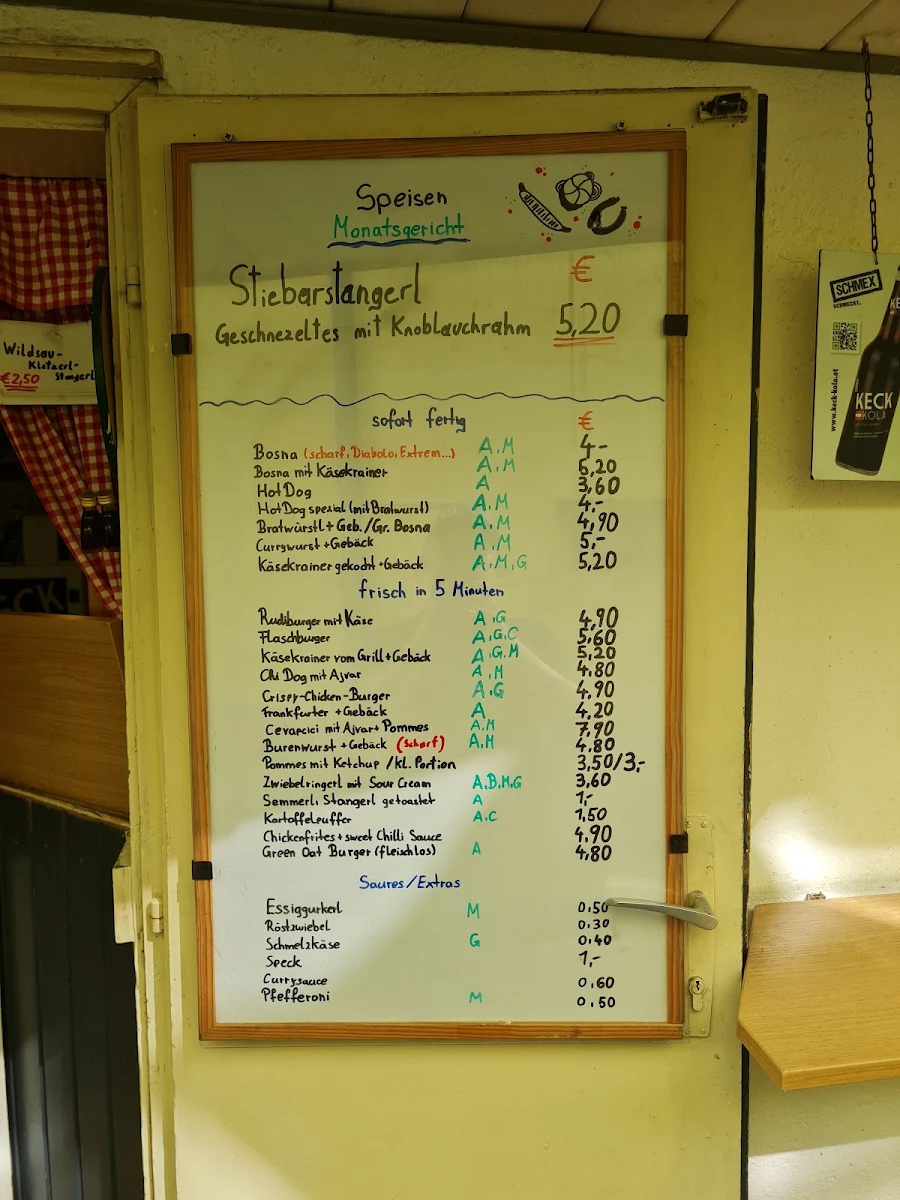 Speisen
Monatsgericht
€
Stieberstangerl
Geschnezeltes mit Knoblauchrahm 5,20
sofort fertig €
Bosna (scharf, Diabolo, Extrem...) A,M 4,-
Bosna mit Käsekrainer A,M 5,20
Hot Dog A 3,60
Hot Dog spezial (mit Bratwurst) A,M 4,-
Bratwürstl + Geb. / Gr. Bosna A,M 4,90
Currywurst + Gebäck A,M 5,-
Käsekrainer gekocht + Gebäck A,M,G 5,20
frisch in 5 Minuten
Rudiburger mit Käse A,G 4,90
Flaschburger A,G,C 5,60
Käsekrainer vom Grill + Gebäck A,G,M 5,20
Oli Dog mit Ajvar A,M 4.80
Crispy-Chicken-Burger A,G 4,90
Frankfurter + Gebäck A 4,20
Cevapcici mit Ajvar + Pommes A,M 7,90
Burenwurst + Gebäck (scharf) A,M 4.80
Pommes mit Ketchup / kl. Portion 3,50/3,-
Zwiebelringerl mit Sour Cream A,B,M,G 3,60
Semmerl, Stangerl getoastet A 1,-
Kartoffelpuffer A,C 1,50
Chickenfrites + sweet Chilli Sauce 4,90
Green Oat Burger (fleischlos) A 4,80
Saures/Extras
Essiggurkerl M 0,50
Röstzwiebel 0,30
Schmelzkäse G 0,40
Speck 1,-
Currysauce 0,60
Pfefferoni M 0,50
Wildsau-
Klatzerl-
€2,50 Stangerl
ECK
SCHMEX
SCHMECKT.
www.keck-kola.at
KECK
KOLA